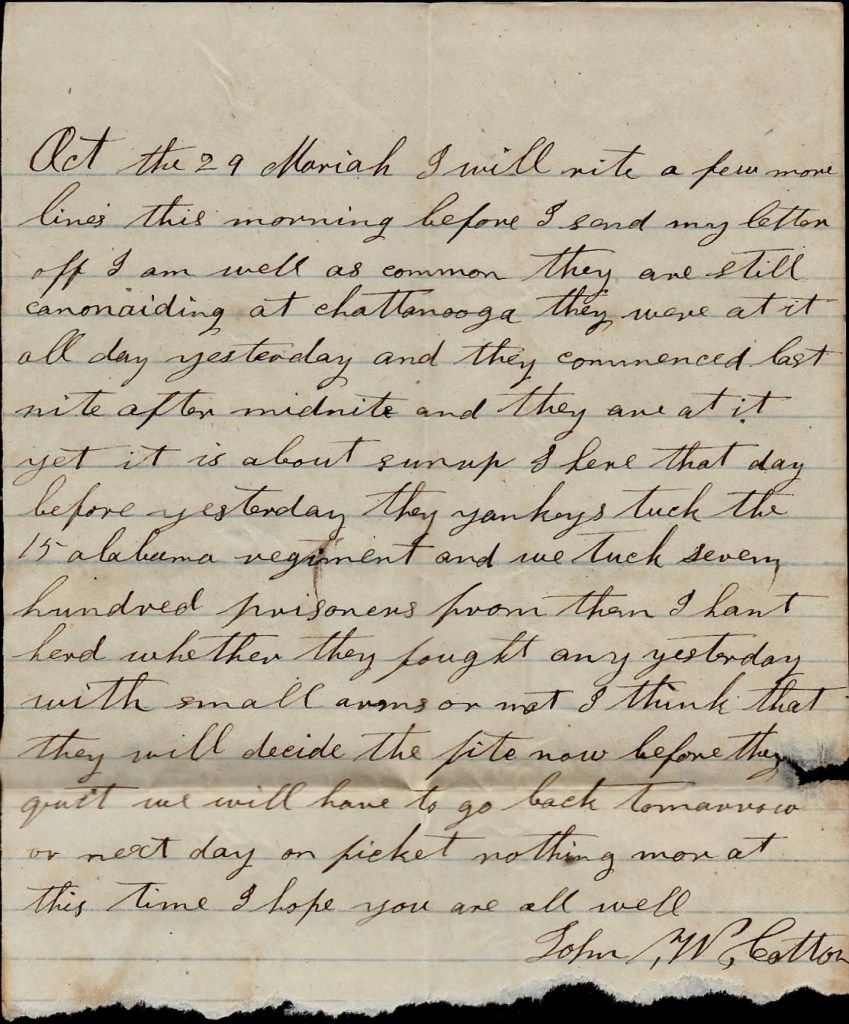 Oct the 29 Mariah I will rite a few more
lines this morning before I send my letter
off I am well as common they are still
canonaiding at chattanooga they were at it
all day yesterday and they commenced last
nite after midnite and they are at it
yet it is about sunup I here that day
before yesterday they yankeys tuck the
15 alabama regiment and we tuck seven
hundred prisoners from them I hant
herd whether they fought any yesterday
with small arms or not I think that
they will decide the fite now before they
quit we will have to go back tomarrow
or next day on picket nothing mor at
this time I hope you are all well
John W, Cotton